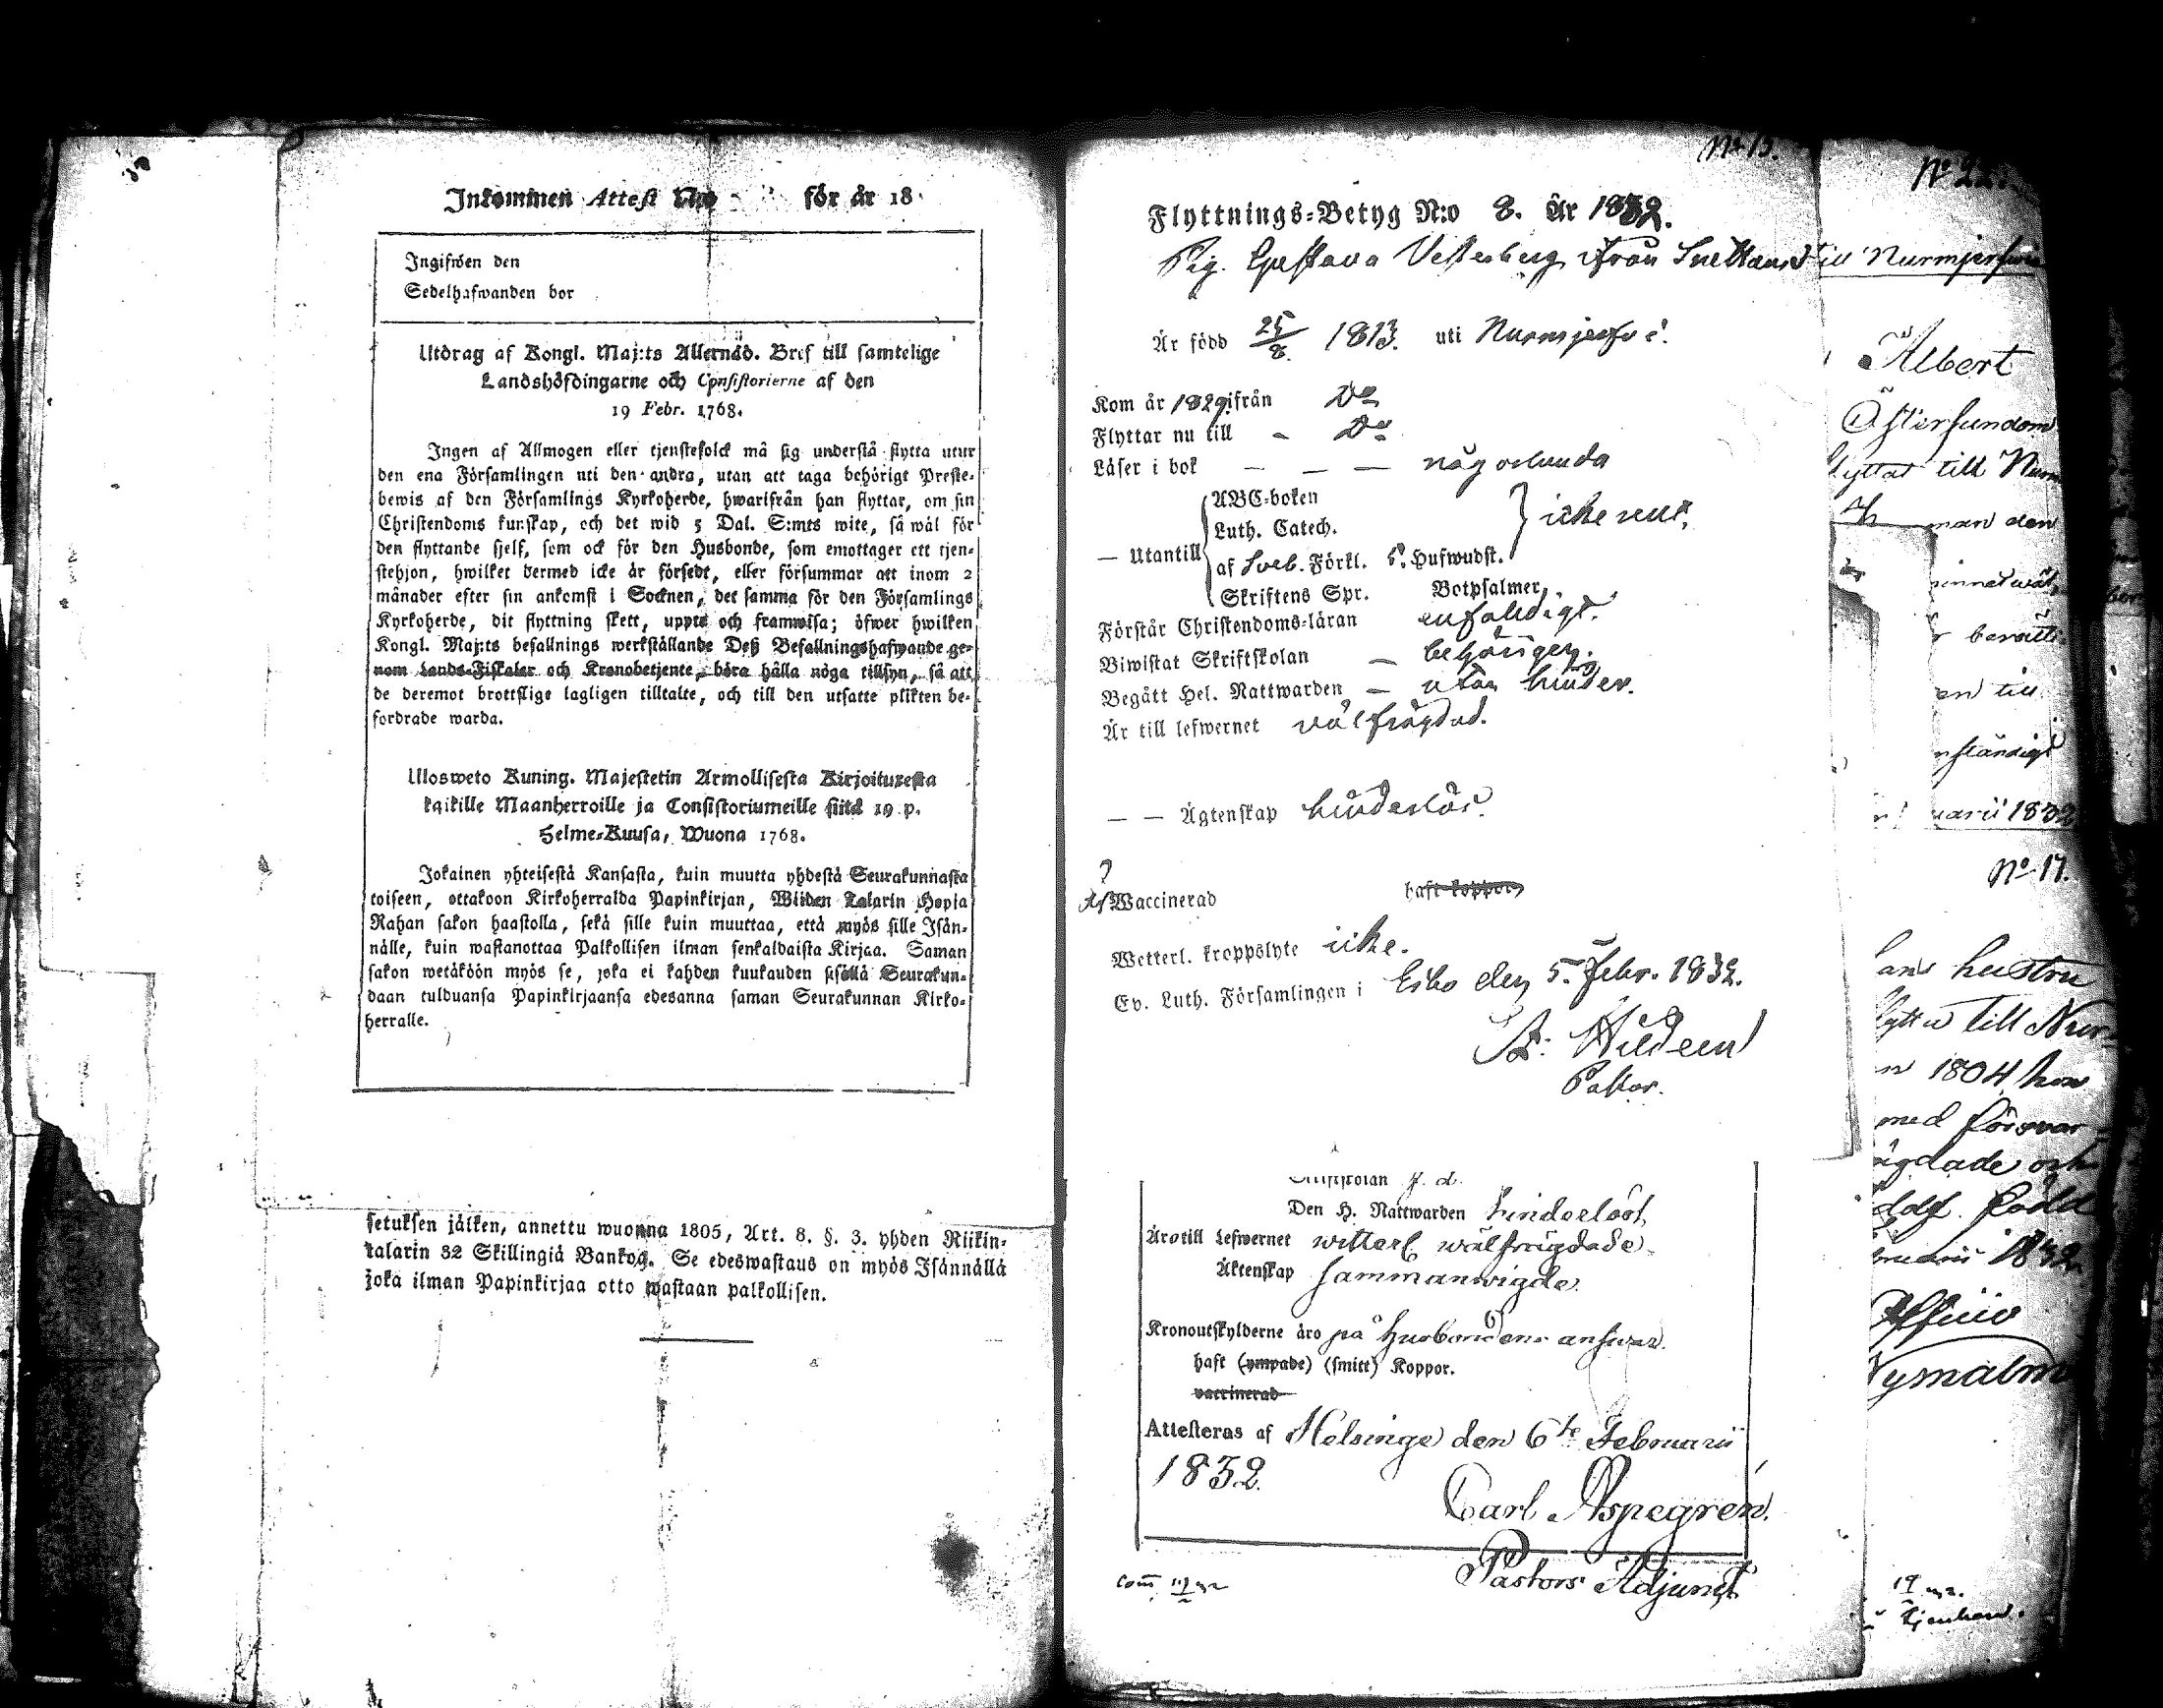 Inkommen Attest N:ro för år 18
Ingifwen den
Sedelhafwanden bor
Utdrag af Kongl. Maj:ts Allernåd. Bref till samtelige
Landshöfdingarne och Consistorierne af den
19 Febr. 1768.
Ingen af Allmogen eller tjenstefolck må sig understå flytta utur
den ena Församlingen uti den andra, utan att taga behörigt Preste-
bewis af den Församlings Kyrkoherde, hwarifrån han flyttar, om sin
Christendoms kunskap, och det wid 5 Dal. S:mts wite, så wäl för
den flyttande sjelf, som ock för den Husbonde, som emottager ett tjen-
stehjon, hwilket dermed icke är försedt, eller försummar att inom 2
månader efter sin ankomst i Socknen, det samma för den Församlings
Kyrkoherde, dit flyttning skett, uppte och framwisa; öfwer hwilken
Kongl. Maj:ts befallnings werkställande Deß Befallningshafwande ge-
nom Lands-Fiskaler och Kronobetjente, böra hålla nöga tillsyn, så att
de deremot brottslige lagligen tilltalte, och till den utsatte plikten be-
fordrade warda.
Ulosweto Kuning. Majestetin Armollisesta Kirjoituxesta
kaikille Maanherroille ja Consistoriumeille siitä 19 p.
Helme-Kuusa, Wuona 1768.
Jokainen yhteisestä Kansasta, kuin muutta yhdestä Seurakunnasta
toiseen, ottakoon Kirkoherralda Papinkirjan, Wiiden Talarin Hopia
Rahan sakon haastolla, sekä sille kuin muuttaa, että myös sille Isän-
nälle, kuin wastanottaa Palkollisen ilman senkaldaista Kirjaa. Saman
sakon wetäköön myös se, joka ei kahden kuukauden sisällä Seurakun-
daan tulduansa Papinkirjaansa edesanna saman Seurakunnan Kirko-
herralle.
setuksen jälken, annettu wuonna 1805, Art. 8. §. 3. yhden Riikin-
talarin 32 Skillingiä Bankog. Se edeswastaus on myös Isännällä
joka ilman Papinkirjaa otto wastaan palkollisen.
No 15.
Flyttnings-Betyg N:o 8. År 1832.
Pig. Gustava Vesterberg ifrån
Är född 25/8. 1813. uti Nurmijerfvi.
Kom år 1829 ifrån Do
Flyttar nu till - Do
Läser i bok — — — någorlunda
ABC-boken
Luth. Catech.
— Utantill af Sveb. Förkl. 5. Hufwudst.
icke rent.
Skriftens Spr. Botpsalmer,
Förstår Christendoms-läran enfaldigt.
Biwistat Skriftskolan — behörigen.
Begått Hel. Nattwarden — utan hinder.
Är till lefwernet välfrägdad.
— — Ägtenskap hinderlös.
Är Waccinerad haft koppor,
Wetterl. kroppslyte icke.
Ev. Luth. Församlingen i Esbo den 5. Febr. 1832.
Pastor.
Den H. Nattwarden hinderlöst,
Äro till Lefwernet witterl. wälfrägdade.
Äktenskap sammanwigde.
Kronoutskylderne äro på Husbondens answar.
haft (ympade) (smitt) Koppor.
vaccinerad
Attesteras af Helsinge den 6te Februarii
1832.
Carl Aspegren.
Pastors Adjunct
No 22.
till Nurmijerfvi
Albert
Östersundom
flyttat till Nurm
man den
en till
nständigt
uarii 1832
No 17.
hans hustru
flytta till Nur-
1804 hon
med försvar-
född
1832
Nymalm